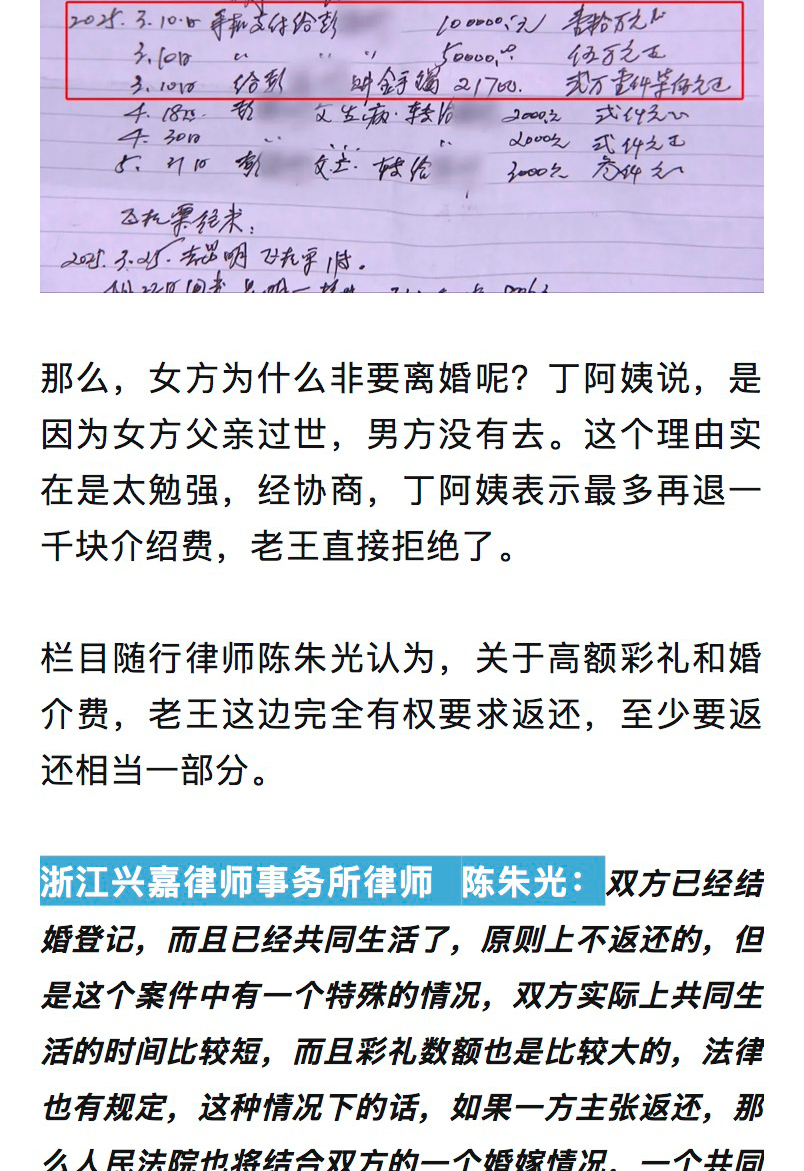 2025. 3. 10日 手机支付给彭 100000.元 壹拾万元正
3. 10日 〃 〃 〃 50000.00 伍万元正
3. 10日 给彭 叶金手镯 21700. 弍万壹仟柒佰元正
4. 18日. 彭 父生病. 转给 2000元 弍仟元正
4. 30日 〃 〃 2000元 弍仟元正
5. 21日 彭 父亡. 转给 3000元 叁仟元正
飞机票往来:
2025. 3. 25. 去昆明飞机票
那么，女方为什么非要离婚呢？丁阿姨说，是
因为女方父亲过世，男方没有去。这个理由实
在是太勉强，经协商，丁阿姨表示最多再退一
千块介绍费，老王直接拒绝了。
栏目随行律师陈朱光认为，关于高额彩礼和婚
介费，老王这边完全有权要求返还，至少要返
还相当一部分。
浙江兴嘉律师事务所律师 陈朱光：双方已经结
婚登记，而且已经共同生活了，原则上不返还的，但
是这个案件中有一个特殊的情况，双方实际上共同生
活的时间比较短，而且彩礼数额也是比较大的，法律
也有规定，这种情况下的话，如果一方主张返还，那
么人民法院也将结合双方的一个婚嫁情况，一个共同